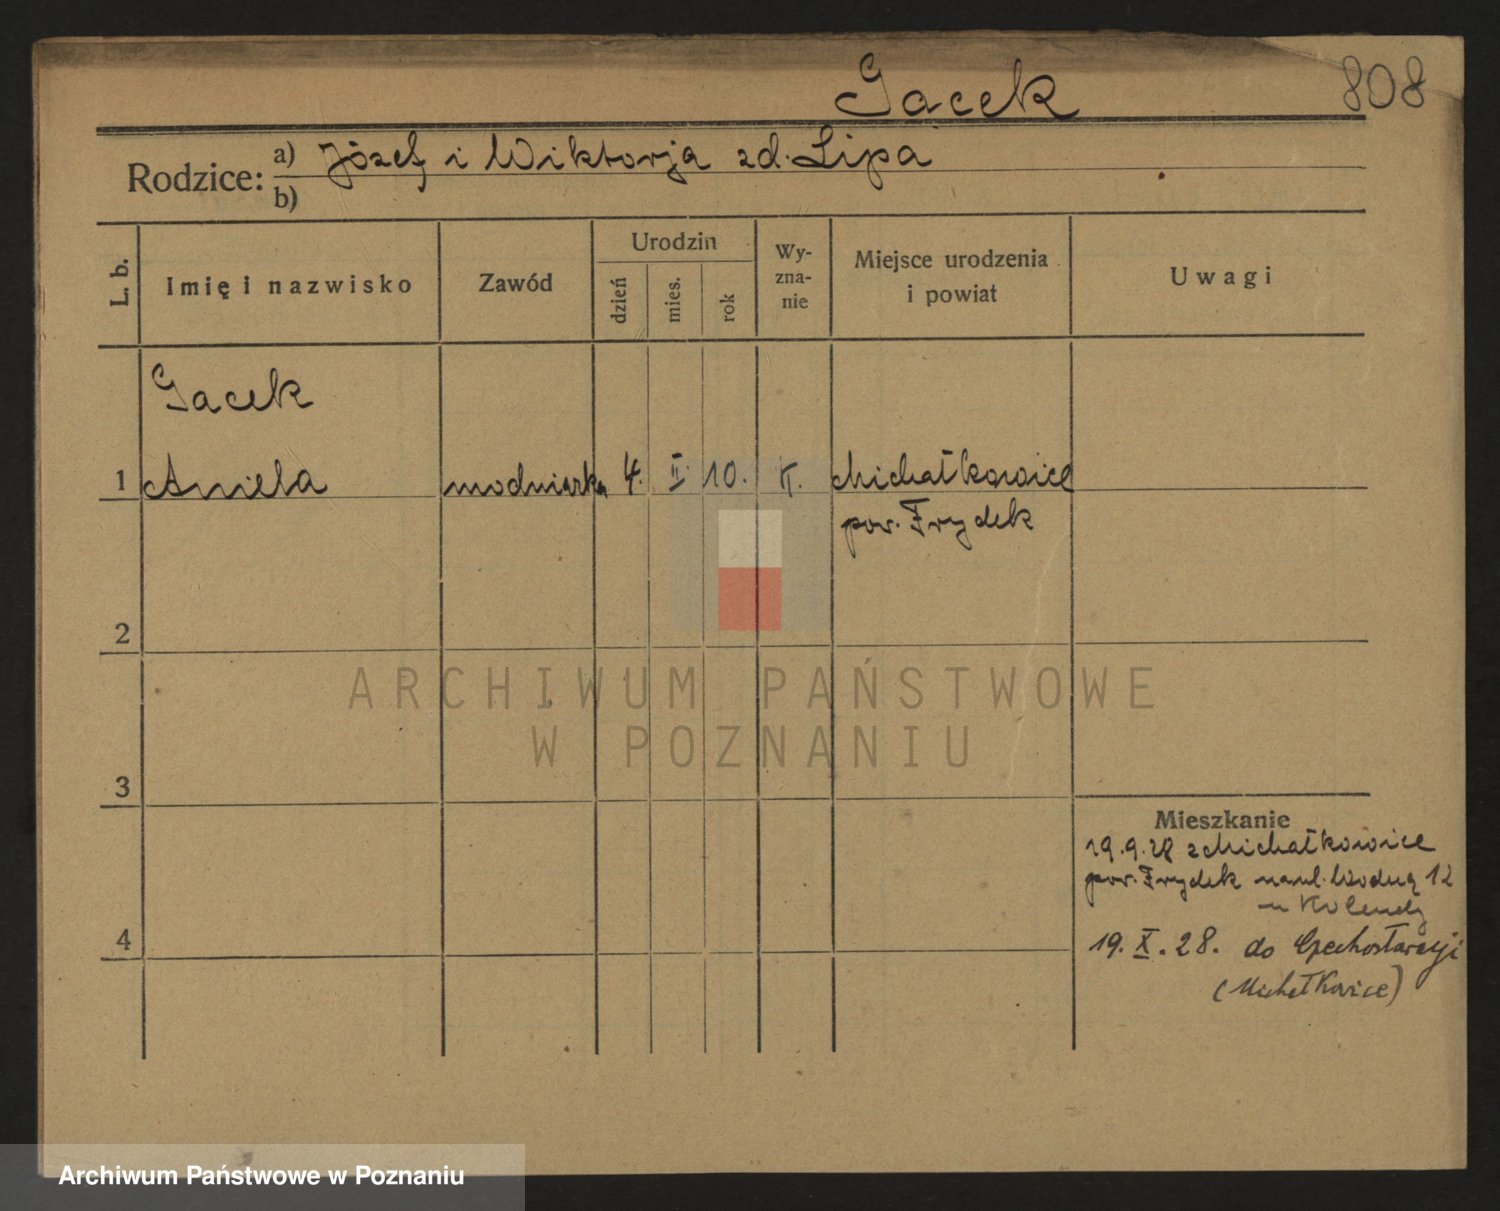 Gacek 808
Rodzice: a) Józef i Wiktorja zd. Lipa
b)
L. b. Imię i nazwisko Zawód Urodzin dzień mies. rok Wy-zna-nie Miejsce urodzenia i powiat Uwagi
Gacek
1 Aniela modniarka 4. II. 10. K. Michałkowice
pow. Frydek
2
ARCHIWUM PAŃSTWOWE
W POZNANIU
3
Mieszkanie
19.9.28 z Michałkowice
pow. Frydek na ul. Wodną 12
u Kolendy
4
19. X. 28. do Czechosłowacji
(Michałkowice)
Archiwum Państwowe w Poznaniu